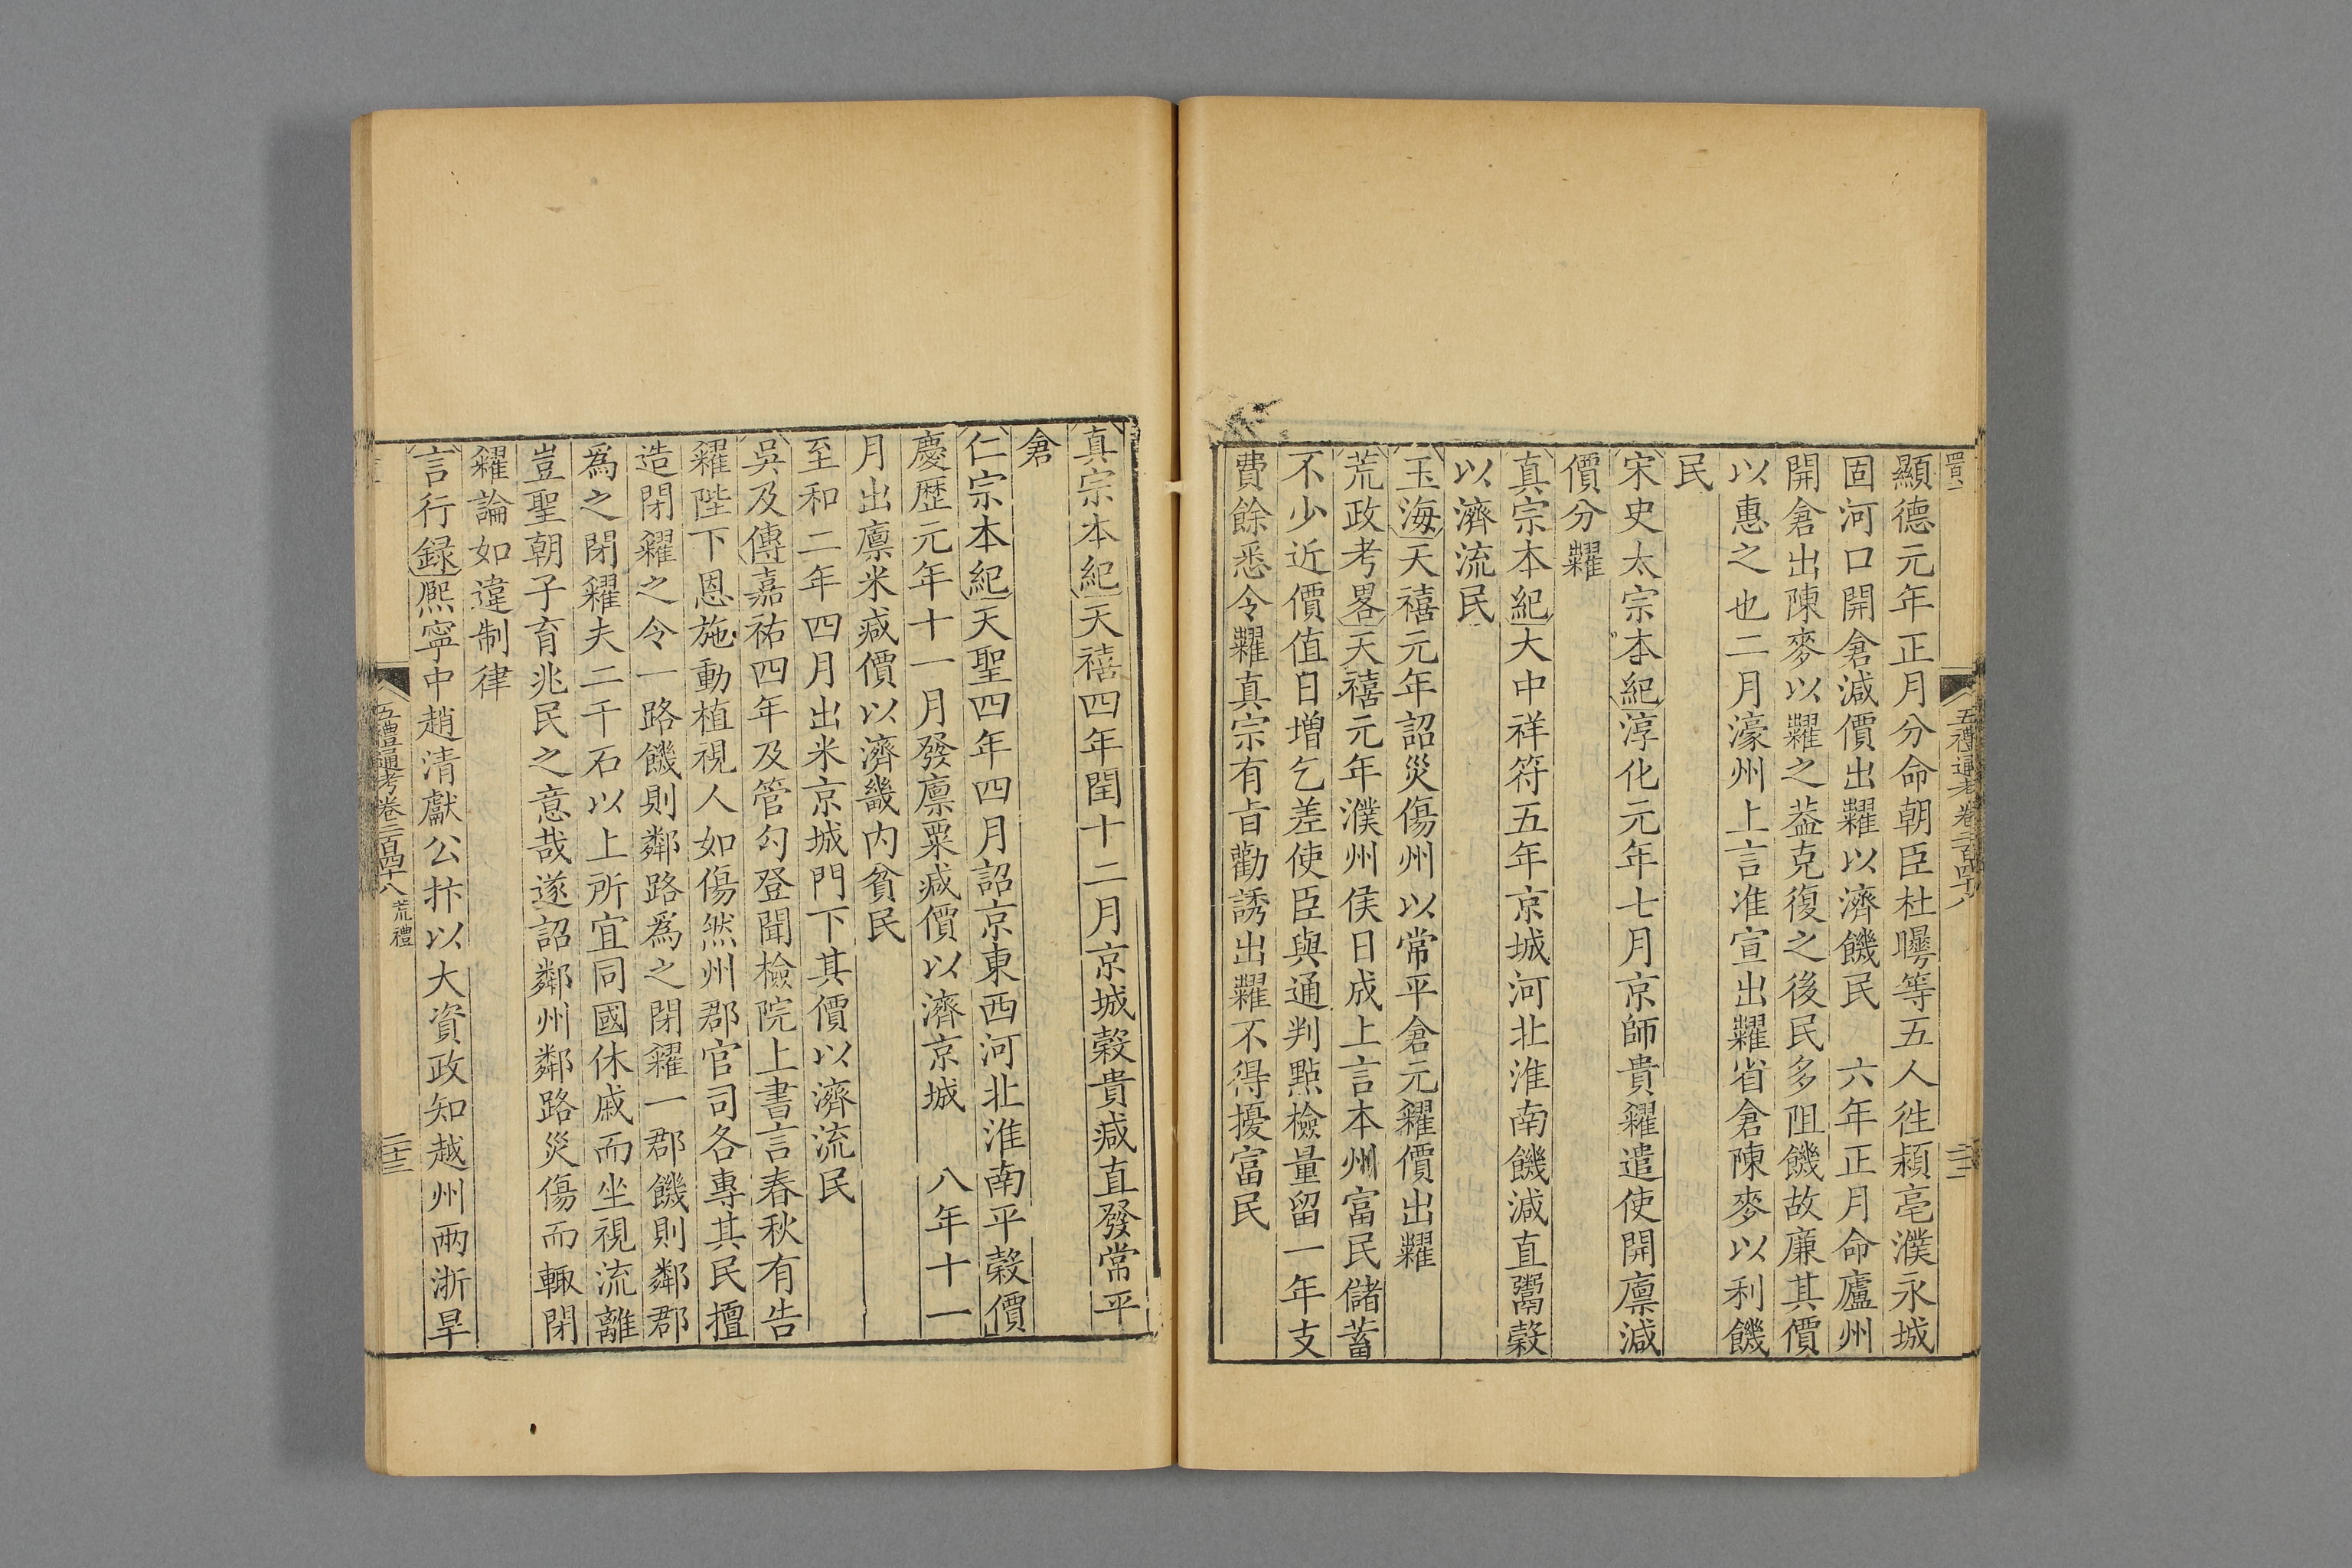 顯德元年正月分命朝臣杜曮等五人徃潁亳濮永城
固河口開倉減價出糶以濟饑民　六年正月命廬州
開倉出陳麥以糶之葢克復之後民多阻饑故廉其價
以惠之也二月濠州上言准宣出糶省倉陳麥以利饑
民
宋史太宗本紀淳化元年七月京師貴糴遣使開廩減
價分糶
真宗本紀大中祥符五年京城河北淮南饑減直鬻穀
以濟流民
玉海天禧元年詔災傷州以常平倉元糴價出糶
荒政考畧天禧元年濮州侯日成上言本州富民儲蓄
不少近價值日增乞差使臣與通判點檢量留一年支
費餘悉令糶真宗有旨勸誘出糶不得擾富民
真宗本紀天禧四年閏十二月京城穀貴減直發常平
倉
仁宗本紀天聖四年四月詔京東西河北淮南平穀價
慶歷元年十一月發廩粟減價以濟京城　八年十一
月出廩米減價以濟畿內貧民
至和二年四月出米京城門下其價以濟流民
吳及傳嘉祐四年及管勾登聞檢院上書言春秋有告
糴陛下恩施動植視人如傷然州郡官司各專其民擅
造閉糴之令一路饑則鄰路爲之閉糴一郡饑則鄰郡
爲之閉糴夫二千石以上所宜同國休戚而坐視流離
豈聖朝子育兆民之意哉遂詔鄰州鄰路災傷而輒閉
糴論如違制律
言行録熈寧中趙清獻公抃以大資政知越州兩浙旱
五禮通考卷二百四十八　荒禮　二十三